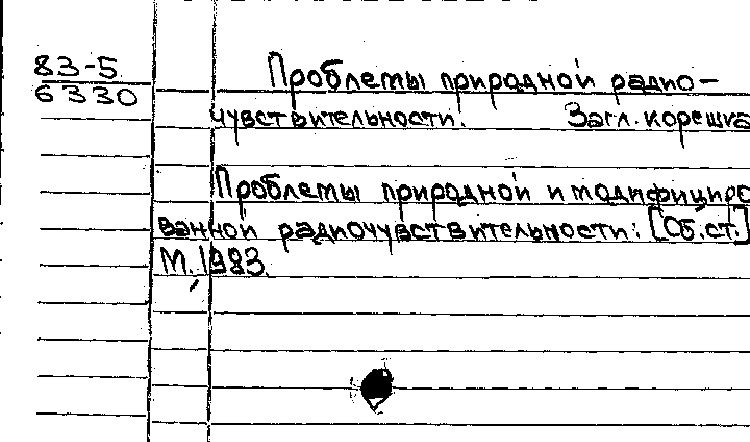 83-5
6330
Проблемы природной радио-
чувствительности. Загл. корешка
Проблемы природной и модифициро
ванной радиочувствительности: [Сб. ст.]
М., 1983.